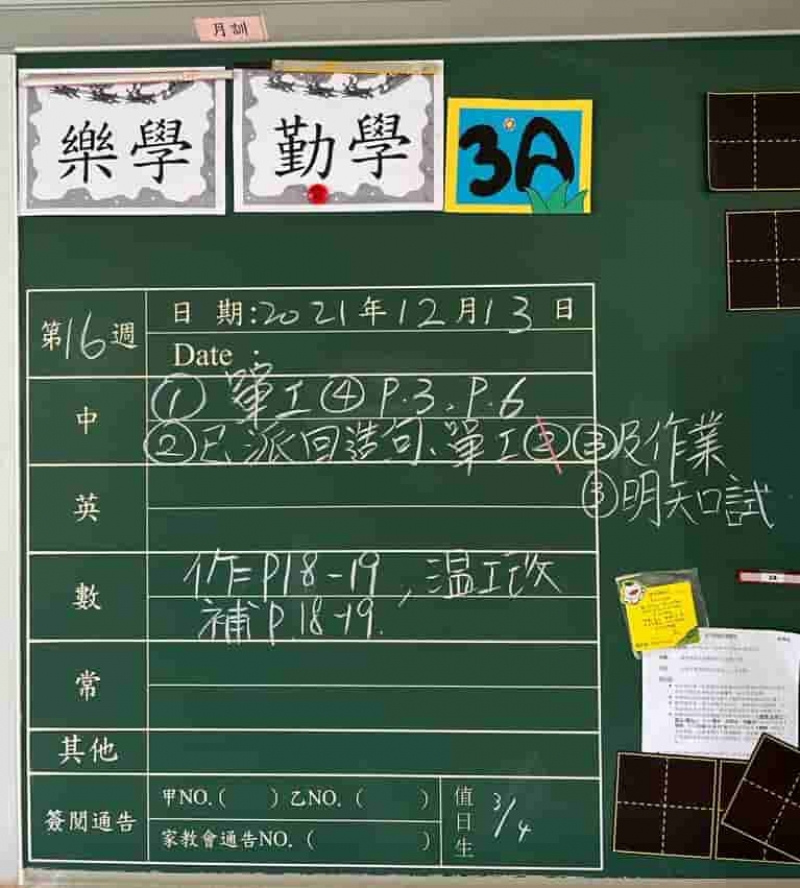 月訓
樂學
勤學
3A
第16週
日期:2021年12月13日
Date :
中
① 單工④ P.3、P.6
②已派回造句、單工②③及作業
③明天口試
英
數
作三P18-19,温工改
補P.18-19.
常
其他
簽閱通告
甲NO.( )乙NO.( )
家教會通告NO.( )
值日生
3/4